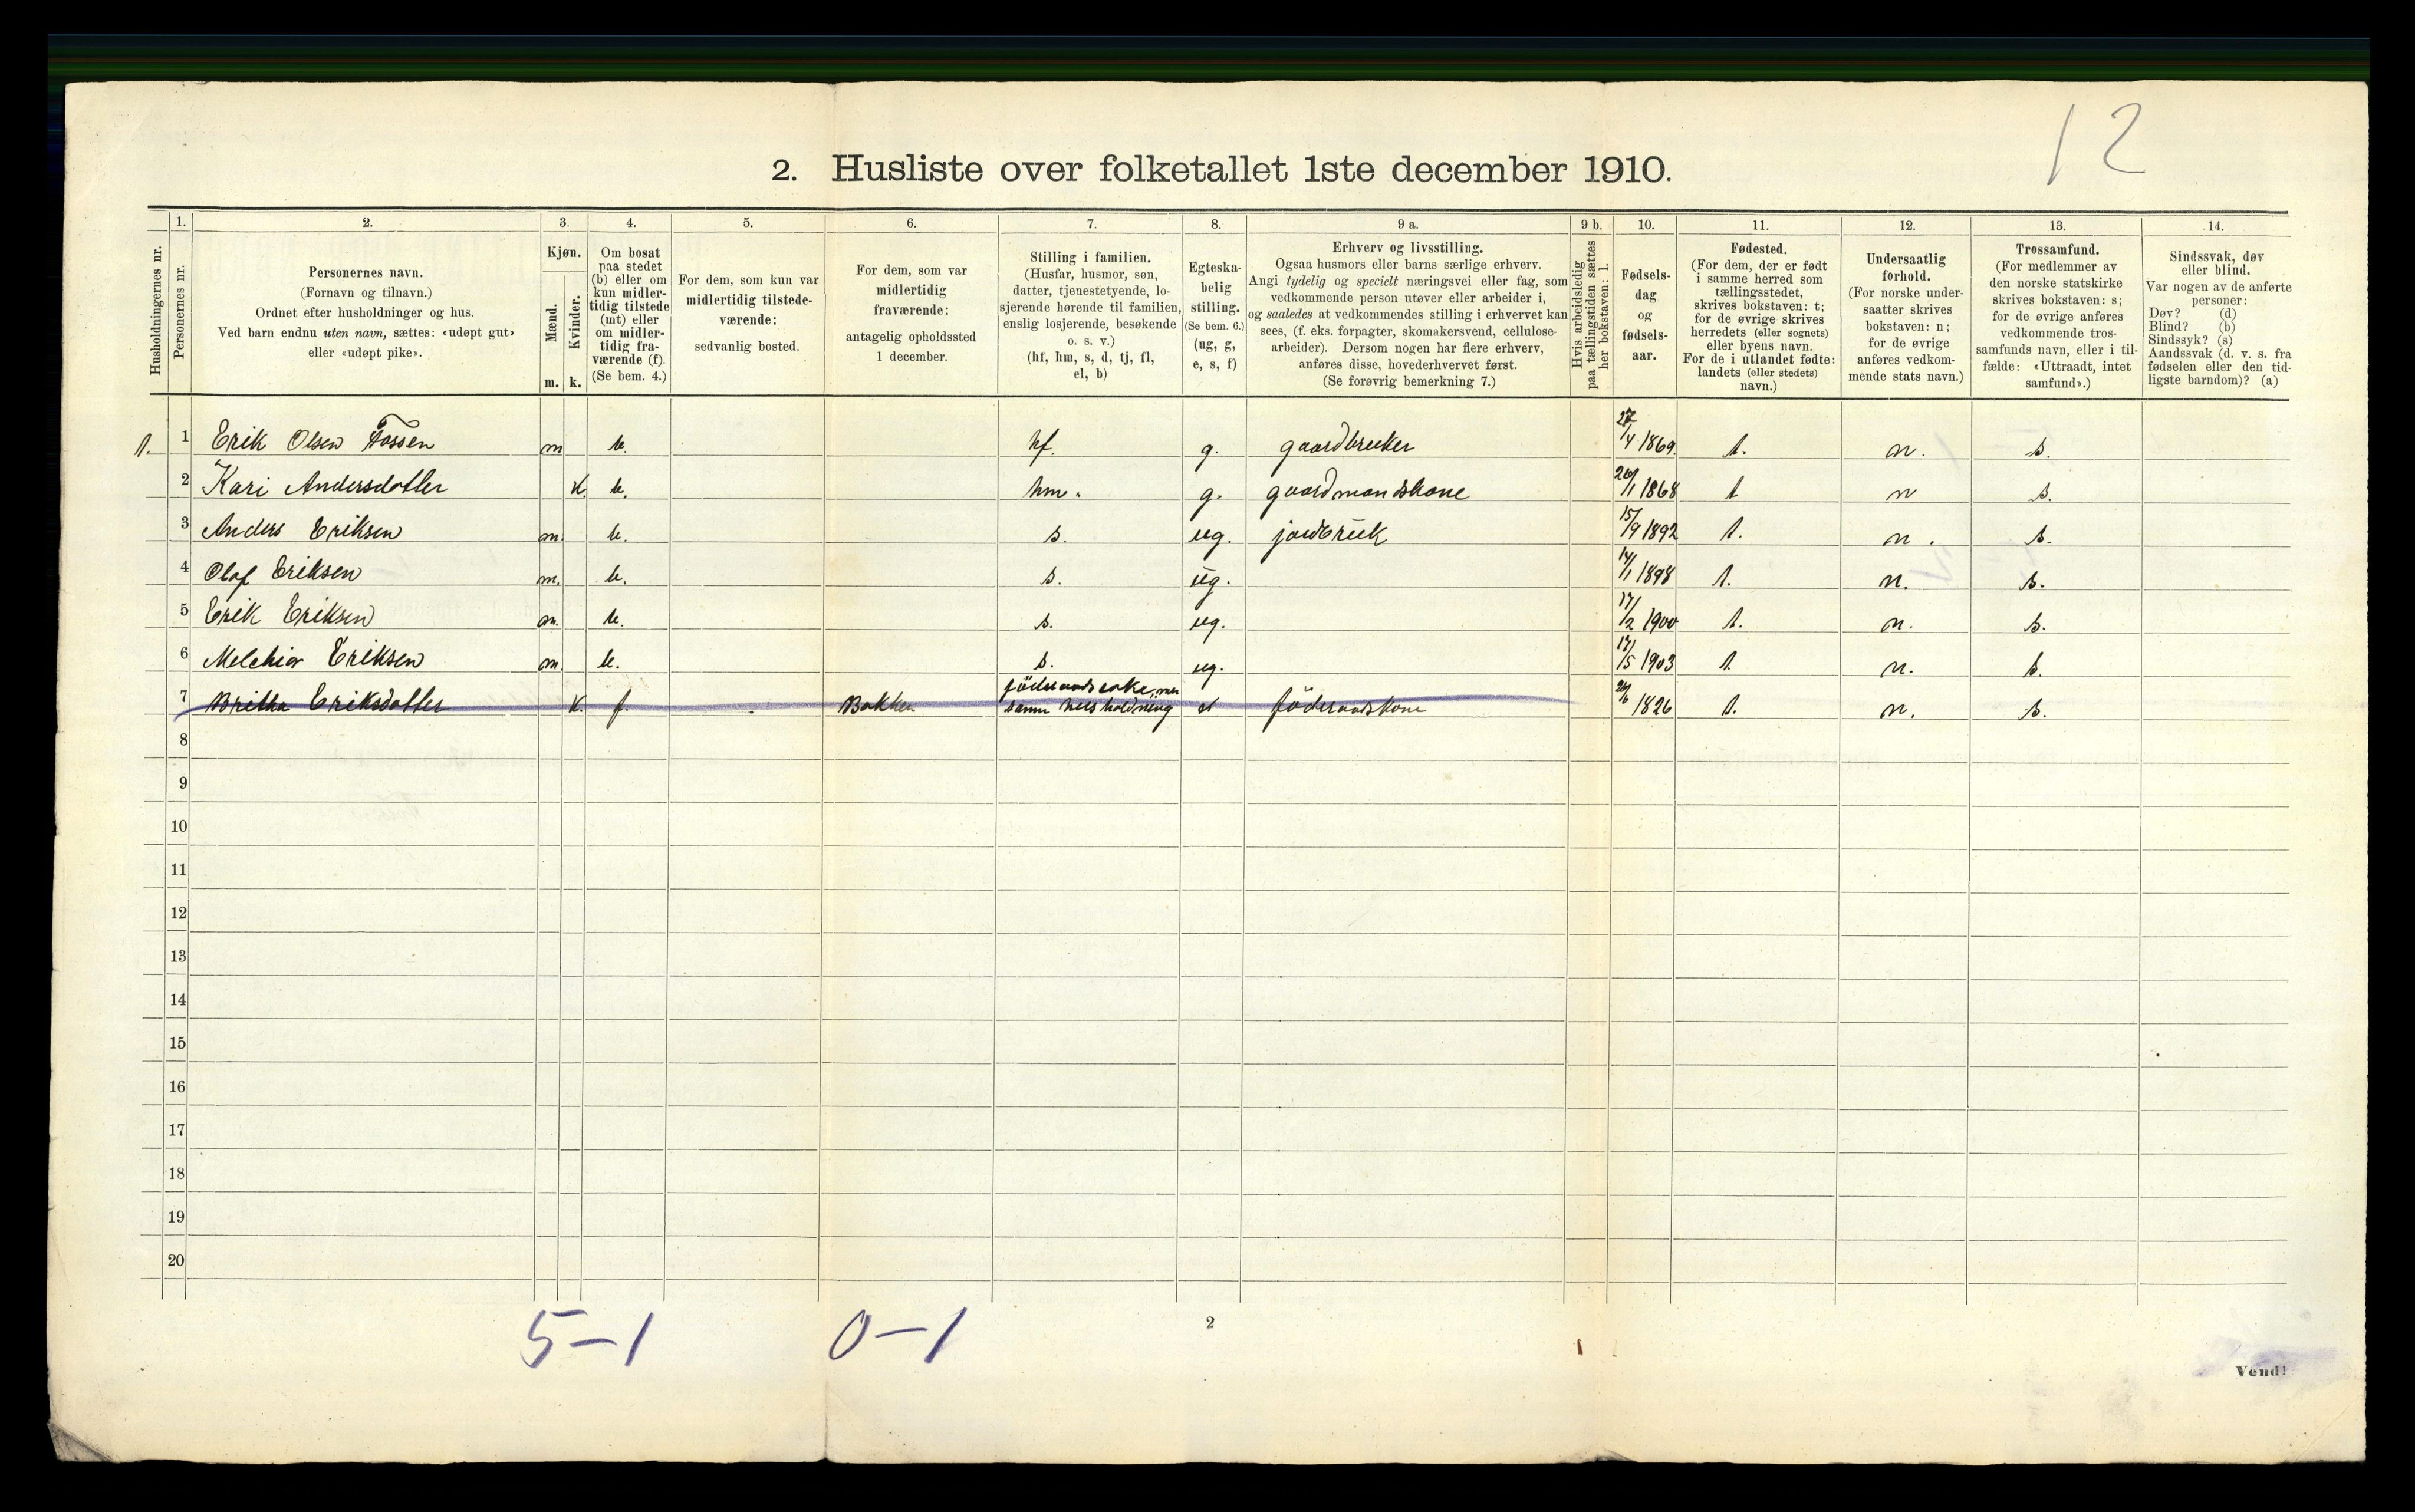 12
2. Husliste over folketallet 1ste december 1910.
Husholdningernes nr.
1.
Personernes nr.
2.
Personernes navn.
(Fornavn og tilnavn.)
Ordnet efter husholdninger og hus.
Ved barn endnu uten navn, sættes: «udøpt gut»
eller «udøpt pike».
3.
Kjøn.
Mænd.
Kvinder.
m. k.
4.
Om bosat
paa stedet
(b) eller om
kun midler-
tidig tilstede
(mt) eller
om midler-
tidig fra-
værende (f).
(Se bem. 4.)
5.
For dem, som kun var
midlertidig tilstede-
værende:
sedvanlig bosted.
6.
For dem, som var
midlertidig
fraværende:
antagelig opholdssted
1 december.
7.
Stilling i familien.
(Husfar, husmor, søn,
datter, tjenestetyende, lo-
sjerende hørende til familien,
enslig losjerende, besøkende
o. s. v.)
(hf, hm, s, d, tj, fl,
el, b)
8.
Egteska-
belig
stilling.
(Se bem. 6.)
(ug, g,
e, s, f)
9 a.
Erhverv og livsstilling.
Ogsaa husmors eller barns særlige erhverv.
Angi tydelig og specielt næringsvei eller fag, som
vedkommende person utøver eller arbeider i,
og saaledes at vedkommendes stilling i erhvervet kan
sees, (f. eks. forpagter, skomakersvend, cellulose-
arbeider). Dersom nogen har flere erhverv,
anføres disse, hovederhvervet først.
(Se forøvrig bemerkning 7.)
9 b.
Hvis arbeidsledig
paa tællingstiden sættes
her bokstaven: l.
10.
Fødsels-
dag
og
fødsels-
aar.
11.
Fødested.
(For dem, der er født
i samme herred som
tællingsstedet,
skrives bokstaven: t;
for de øvrige skrives
herredets (eller sognets)
eller byens navn.
For de i utlandet fødte:
landets (eller stedets)
navn.)
12.
Undersaatlig
forhold.
(For norske under-
saatter skrives
bokstaven: n;
for de øvrige
anføres vedkom-
mende stats navn.)
13.
Trossamfund.
(For medlemmer av
den norske statskirke
skrives bokstaven: s;
for de øvrige anføres
vedkommende tros-
samfunds navn, eller i til-
fælde: «Uttraadt, intet
samfund».)
14.
Sindssvak, døv
eller blind.
Var nogen av de anførte
personer:
Døv? (d)
Blind? (b)
Sindssyk? (s)
Aandssvak (d. v. s. fra
fødselen eller den tid-
ligste barndom)? (a)
1. 1 Erik Olsen Fossen m b. hf. g. gaardbruker 27/4 1869. t. n. s.
2 Kari Andersdotter K. b. hm. g. gaardmandskone 26/1 1868 t n s.
3 Anders Eriksen m. b. s. ug. jordbruk 15/9 1892 t. n. s.
4 Olaf Eriksen m. b. s. ug. 14/1 1898 t. n. s.
5 Erik Eriksen m. b. s. ug. 17/2 1900 t. n. s.
6 Melchior Eriksen m. b. s. ug. 17/5 1903 t. n. s.
7 Britha Eriksdotter K. f Bakken samme husholdning föderaadskone 1826 t. n. s.
8
9
10
11
12
13
14
15
16
17
18
19
20
5-1 0-1
2
Vend!